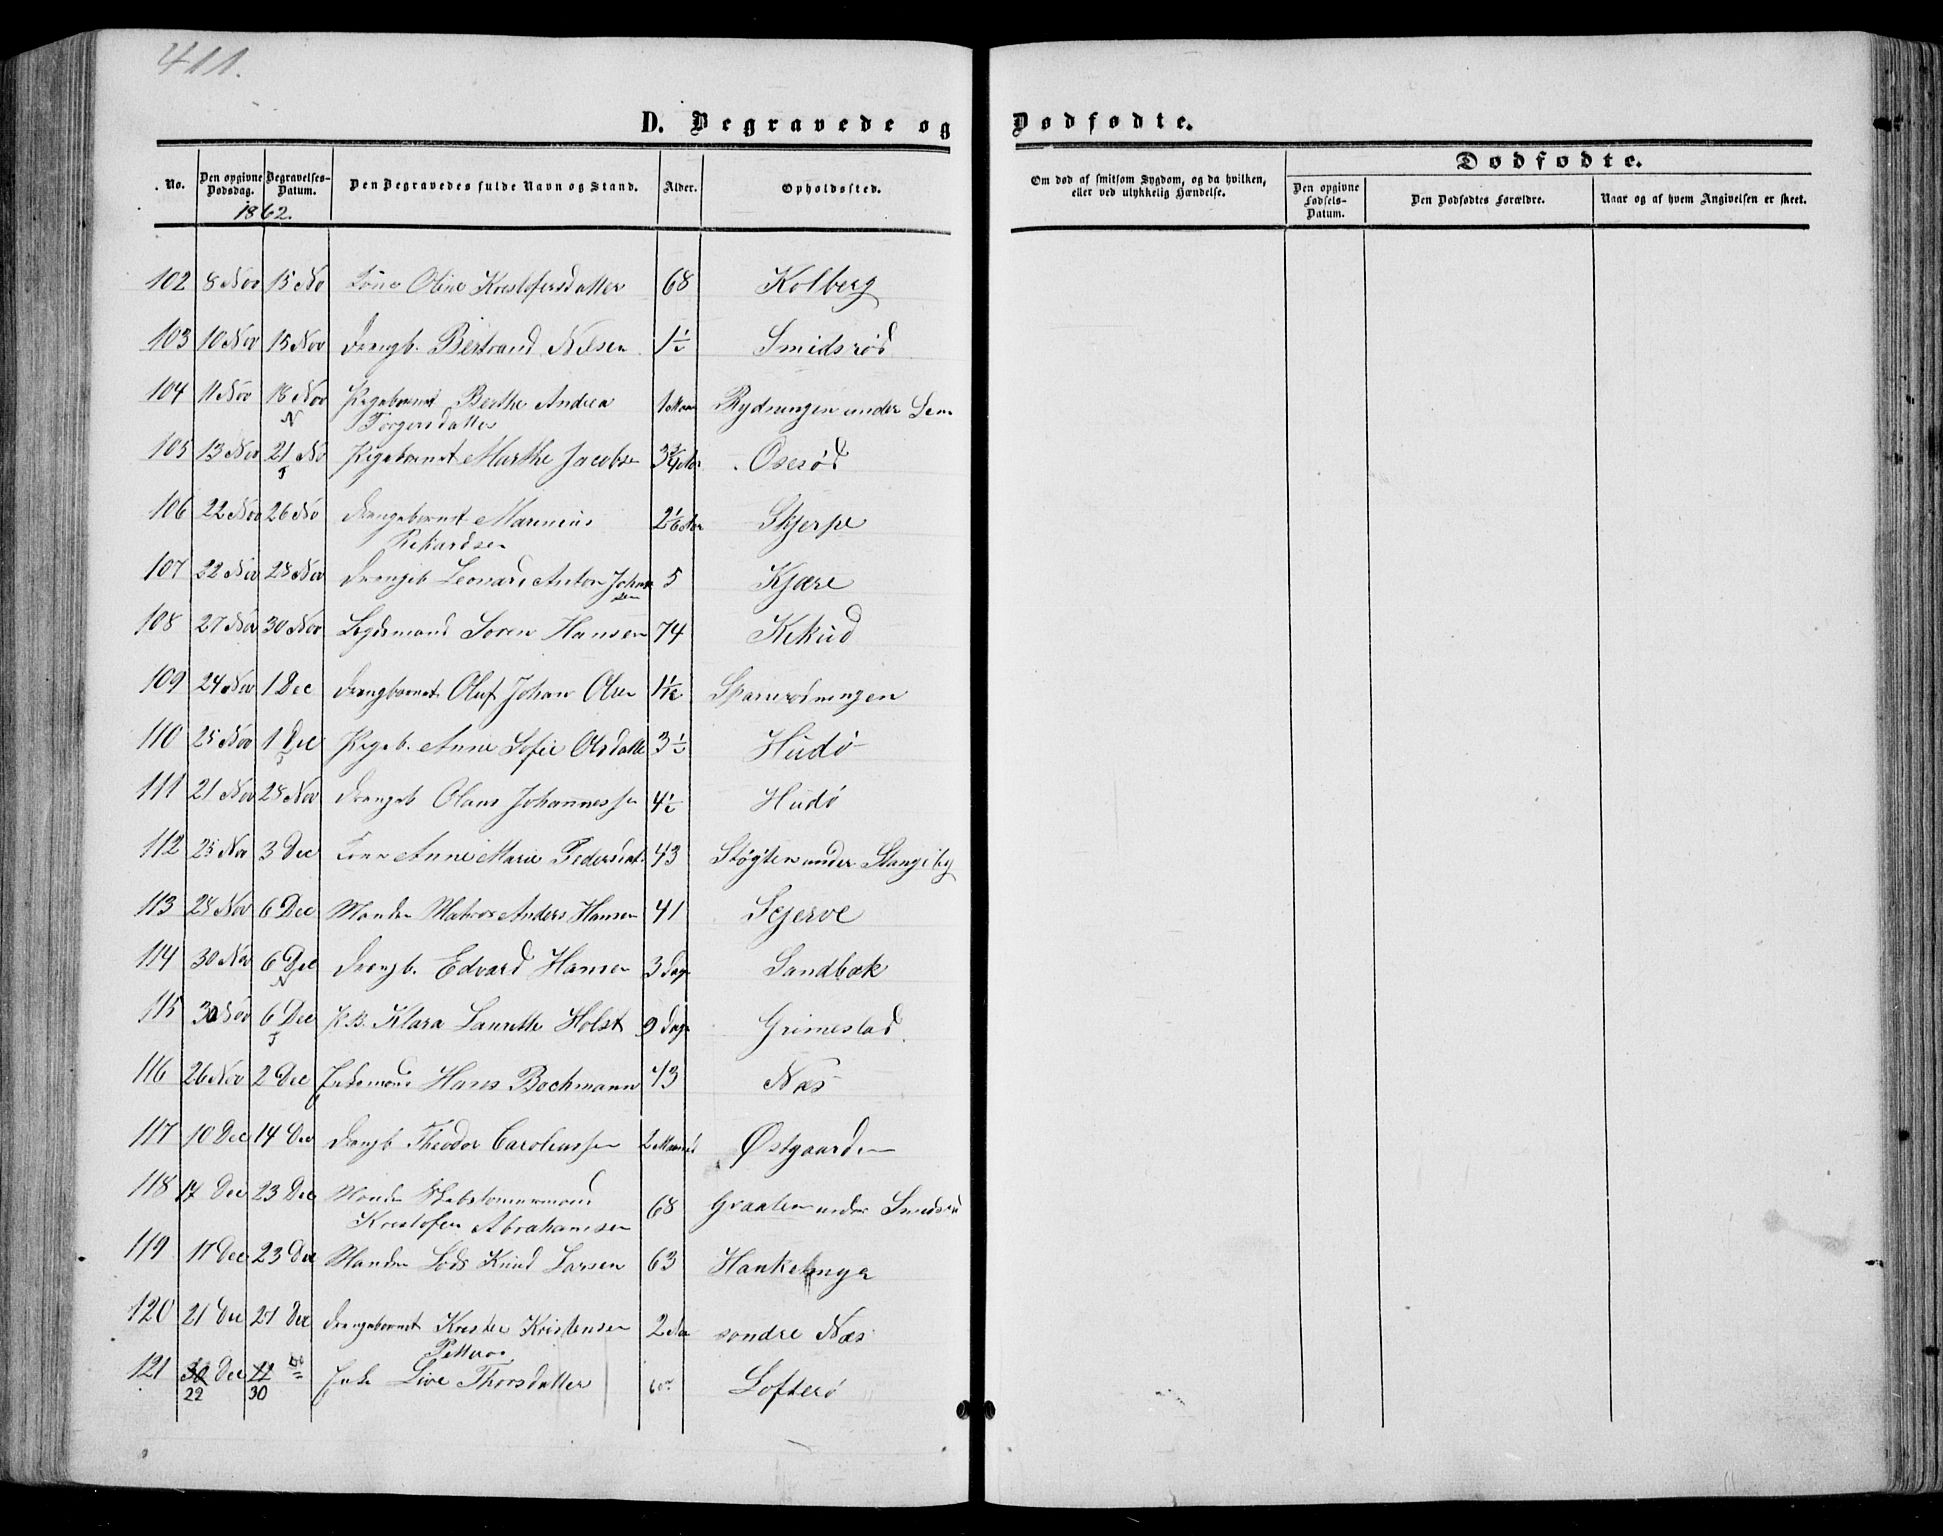 411.
D. Begravede og Dødfødte.
Dødfødte.
No. Den opgivne Dødsdag. Begravelses-Datum. Den Begravedes fulde Navn og Stand. Alder. Opholdssted. Om død af smitsom Sygdom, og da hvilken, eller ved ulykkelig Hændelse. Den opgivne Fødsels-Datum. Den Dødfødtes Forældre. Naar og af hvem Angivelsen er skeet.
1862.
102 8 Nov 15 No Oline Kristofersdatter 68 Kolberg
103 10 Nov 15 Nov Drengb. Bertrand Nilsen 1½ Smidsrød
104 11 Nov 18 Nov Pigebarnet Berthe Andrea 1 Rydningen under Sem
N Torgersdatter
105 13 Nov 21 No Pigebarnet Marthe Jacobse 3¾ Oserød
J
106 22 Nov 26 No Drengebarnet Marinius 2 1/6 Skjerpe
Rikardsen
107 22 Nov 28 Nov Drengeb Leonard Anton Johan 5 Kjære
sen
108 27 Nov 30 Nov Legdsmand Soren Hansen 74 Kekud
109 24 Nov 1 Dec Drengbarnet Oluf Johan Olsen 1½
110 25 Nov 1 Dec Pigeb. Anne Sofie Olsdatte 3½ Hudø
J
111 21 Nov 28 Nov Drengeb Olaus Johannessen 4½ Hudø
112 25 Nov 3 Dec Anne Marie Pedersdat 43 under Stangeby
113 28 Nov 6 Dec Manden Matros Anders Hansen 41 Skjerve
114 30 Nov 6 Dec Drengb. Edvard Hansen 3 Dage Sandbæk
N
115 30 Nov 6 Dec P.B. Klara Laurette Holst 9 Dage Grimestad.
J
116 26 Nov 2 Dec Hans Bochmann 43 Næs
117 10 Dec 14 Dec Drengb Theodor Caroliussen 2 Østgaarden
118 17 Dec 23 Dec Manden Skibstømmermand 68 Graaten under Smidsrød
Kristofer Abrahamsen
119 17 Dec 23 Dec Manden Lods Knud Larsen 63
120 21 Dec 27 Dec Drengebarnet Krister Kristensen 2 søndre Næs
Petteros
121 30 Dec 22 Live Thorsdatter Lofterø
22 30